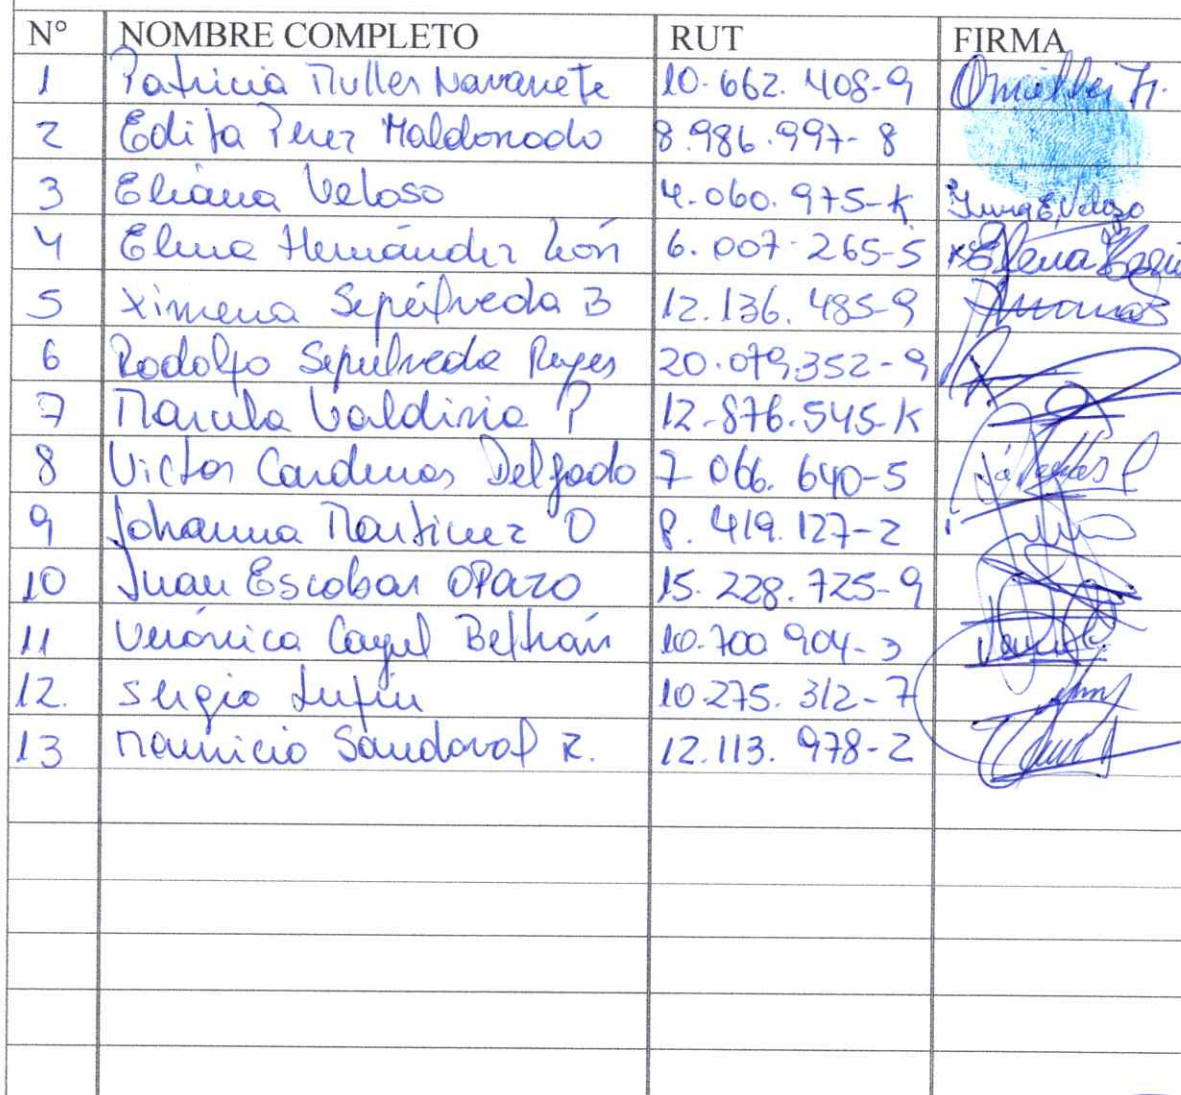 N° NOMBRE COMPLETO RUT FIRMA
1 Patricia Muller Navarrete 10.662.408-9
2 Edita Perez Maldonado 8.986.997-8
3 Eliana Veloso 4.060.975-K
4 Elena Hernández León 6.007.265-5 Elena
5 Ximena Sepúlveda B 12.136.485-9
6 Rodolfo Sepulveda Reyes 20.079.352-9
7 Marcela Valdivia P 12-876.545-K
8 Victor Cardenas Delgado 7 066. 640-5
9 Johanna Martinez O 8.419.127-2
10 Juan Escobar OPAZO 15.228.725-9
11 Verónica Cayul Beltrán 10.700 904-3
12. Sergio 10.275.312-7
13 Mauricio Sandoval R. 12.113.978-2